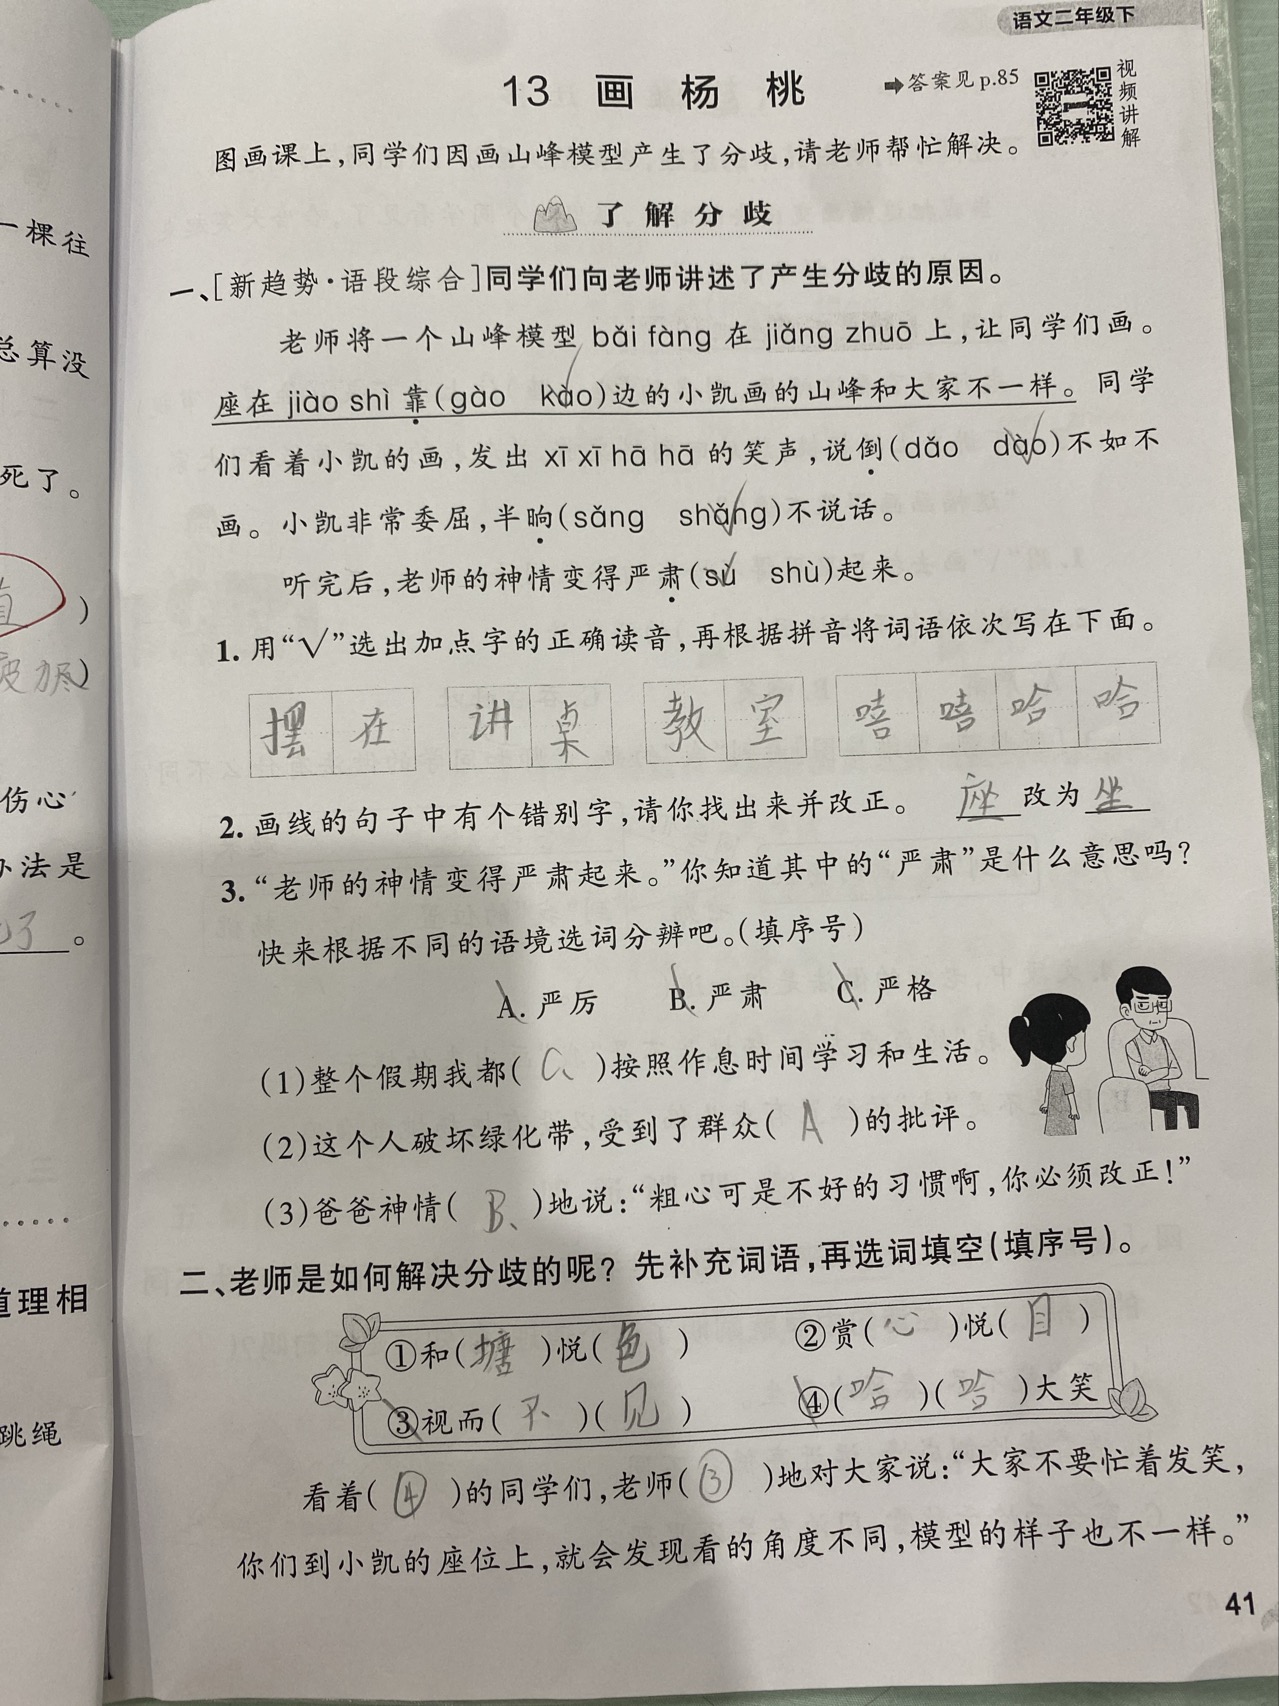 一棵往
总算没
死了。
)
疲力尽)
伤心
办法是
了。
道理相
跳绳
语文二年级下
13 画杨桃
➡答案见 p.85
视频讲解
图画课上,同学们因画山峰模型产生了分歧,请老师帮忙解决。
了解分歧
一、[新趋势·语段综合]同学们向老师讲述了产生分歧的原因。
老师将一个山峰模型 bǎi fàng 在 jiǎng zhuō 上,让同学们画。
座在 jiào shì 靠(gào kào)边的小凯画的山峰和大家不一样。同学
们看着小凯的画,发出 xī xī hā hā 的笑声,说倒(dǎo dào)不如不
画。小凯非常委屈,半晌(sǎng shǎng)不说话。
听完后,老师的神情变得严肃(sù shù)起来。
1. 用“√”选出加点字的正确读音,再根据拼音将词语依次写在下面。
摆在 讲桌 教室 嘻嘻哈哈
2. 画线的句子中有个错别字,请你找出来并改正。 座改为坐
3. “老师的神情变得严肃起来。”你知道其中的“严肃”是什么意思吗?
快来根据不同的语境选词分辨吧。(填序号)
A. 严厉 B. 严肃 C. 严格
(1)整个假期我都( C、 )按照作息时间学习和生活。
(2)这个人破坏绿化带,受到了群众( A )的批评。
(3)爸爸神情( B、 )地说:“粗心可是不好的习惯啊,你必须改正!”
二、老师是如何解决分歧的呢?先补充词语,再选词填空(填序号)。
①和( 搪 )悦( 色 ) ②赏( 心 )悦( 目 )
③视而( 不 )( 见 ) ④( 哈 )( 哈 )大笑
看着( ④ )的同学们,老师( ③ )地对大家说:“大家不要忙着发笑,
你们到小凯的座位上,就会发现看的角度不同,模型的样子也不一样。”
41